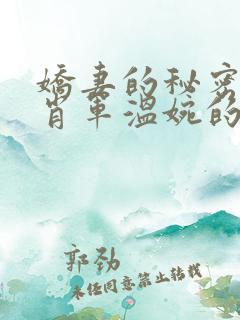 嬌妻的秘密
肖軍溫婉的
郭勁
未任同意禁止转載